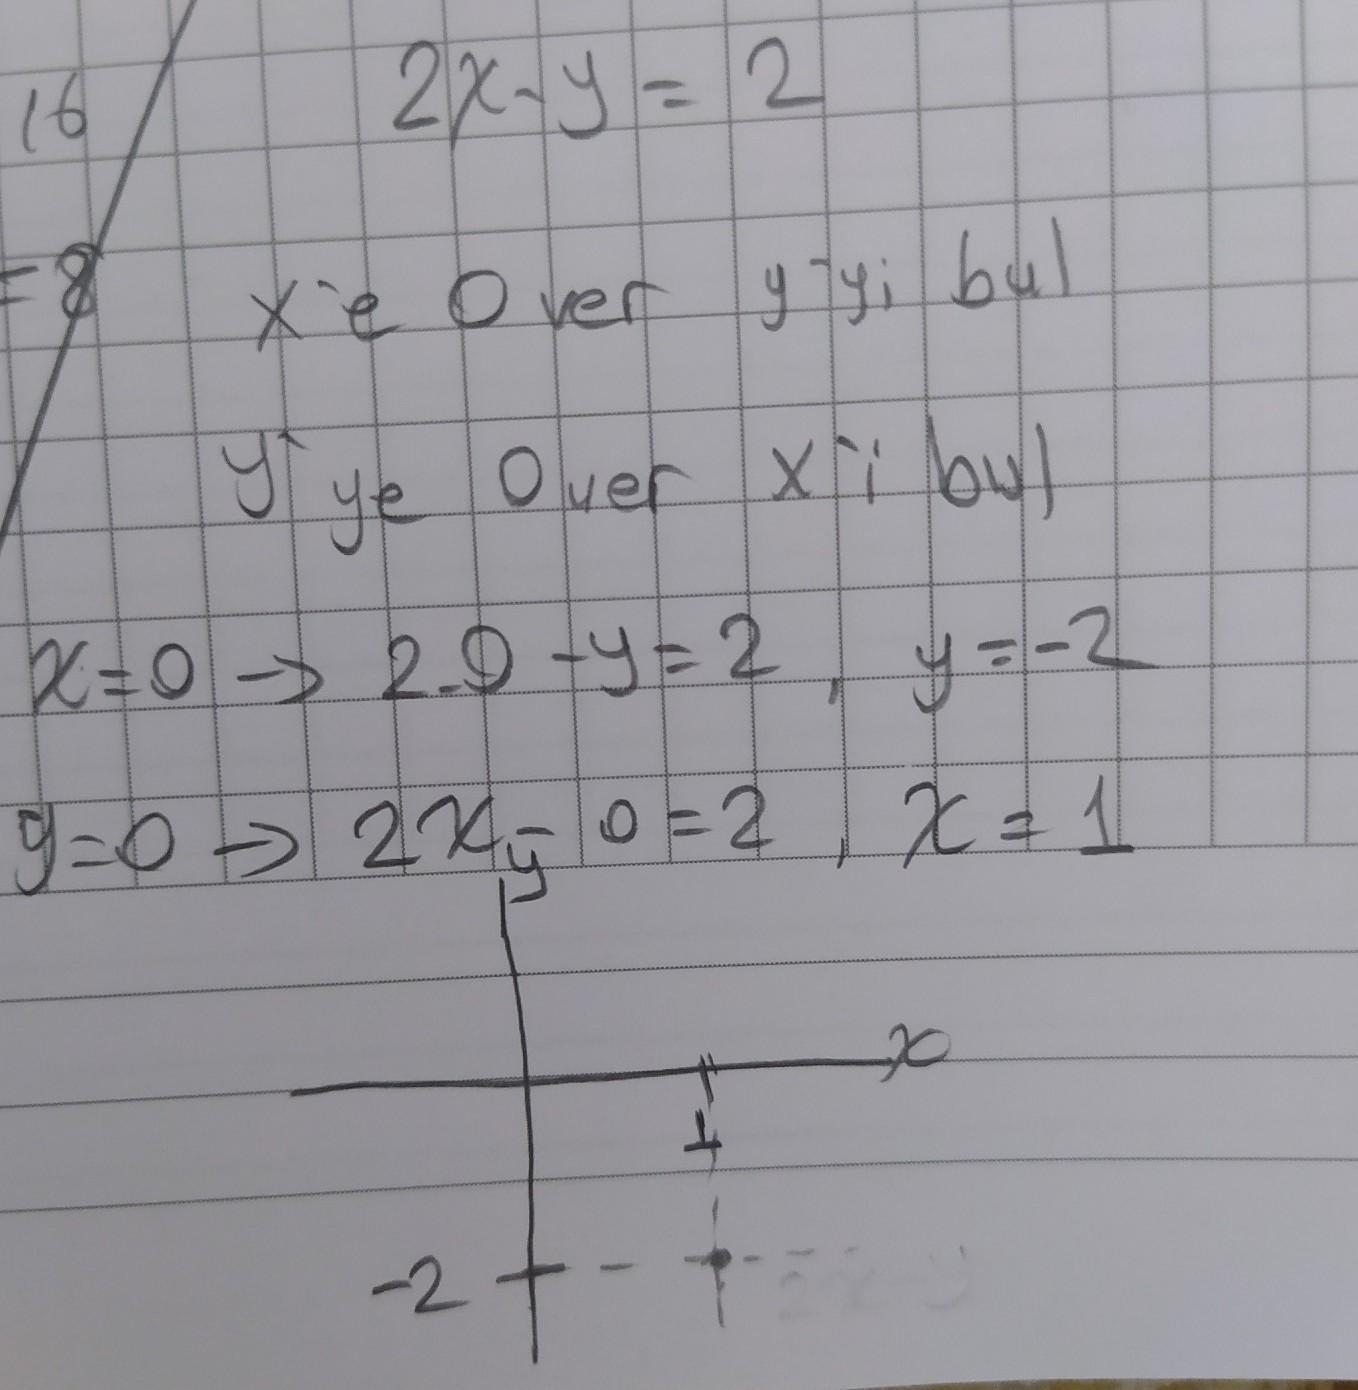 16
2x-y = 2
= 8
x'e 0 ver y'yi bul
y'ye 0 ver x'i bul
x=0 → 2.0 -y = 2, y = -2
y=0 → 2x - 0 = 2, x = 1
y
x
1
-2
2x-y